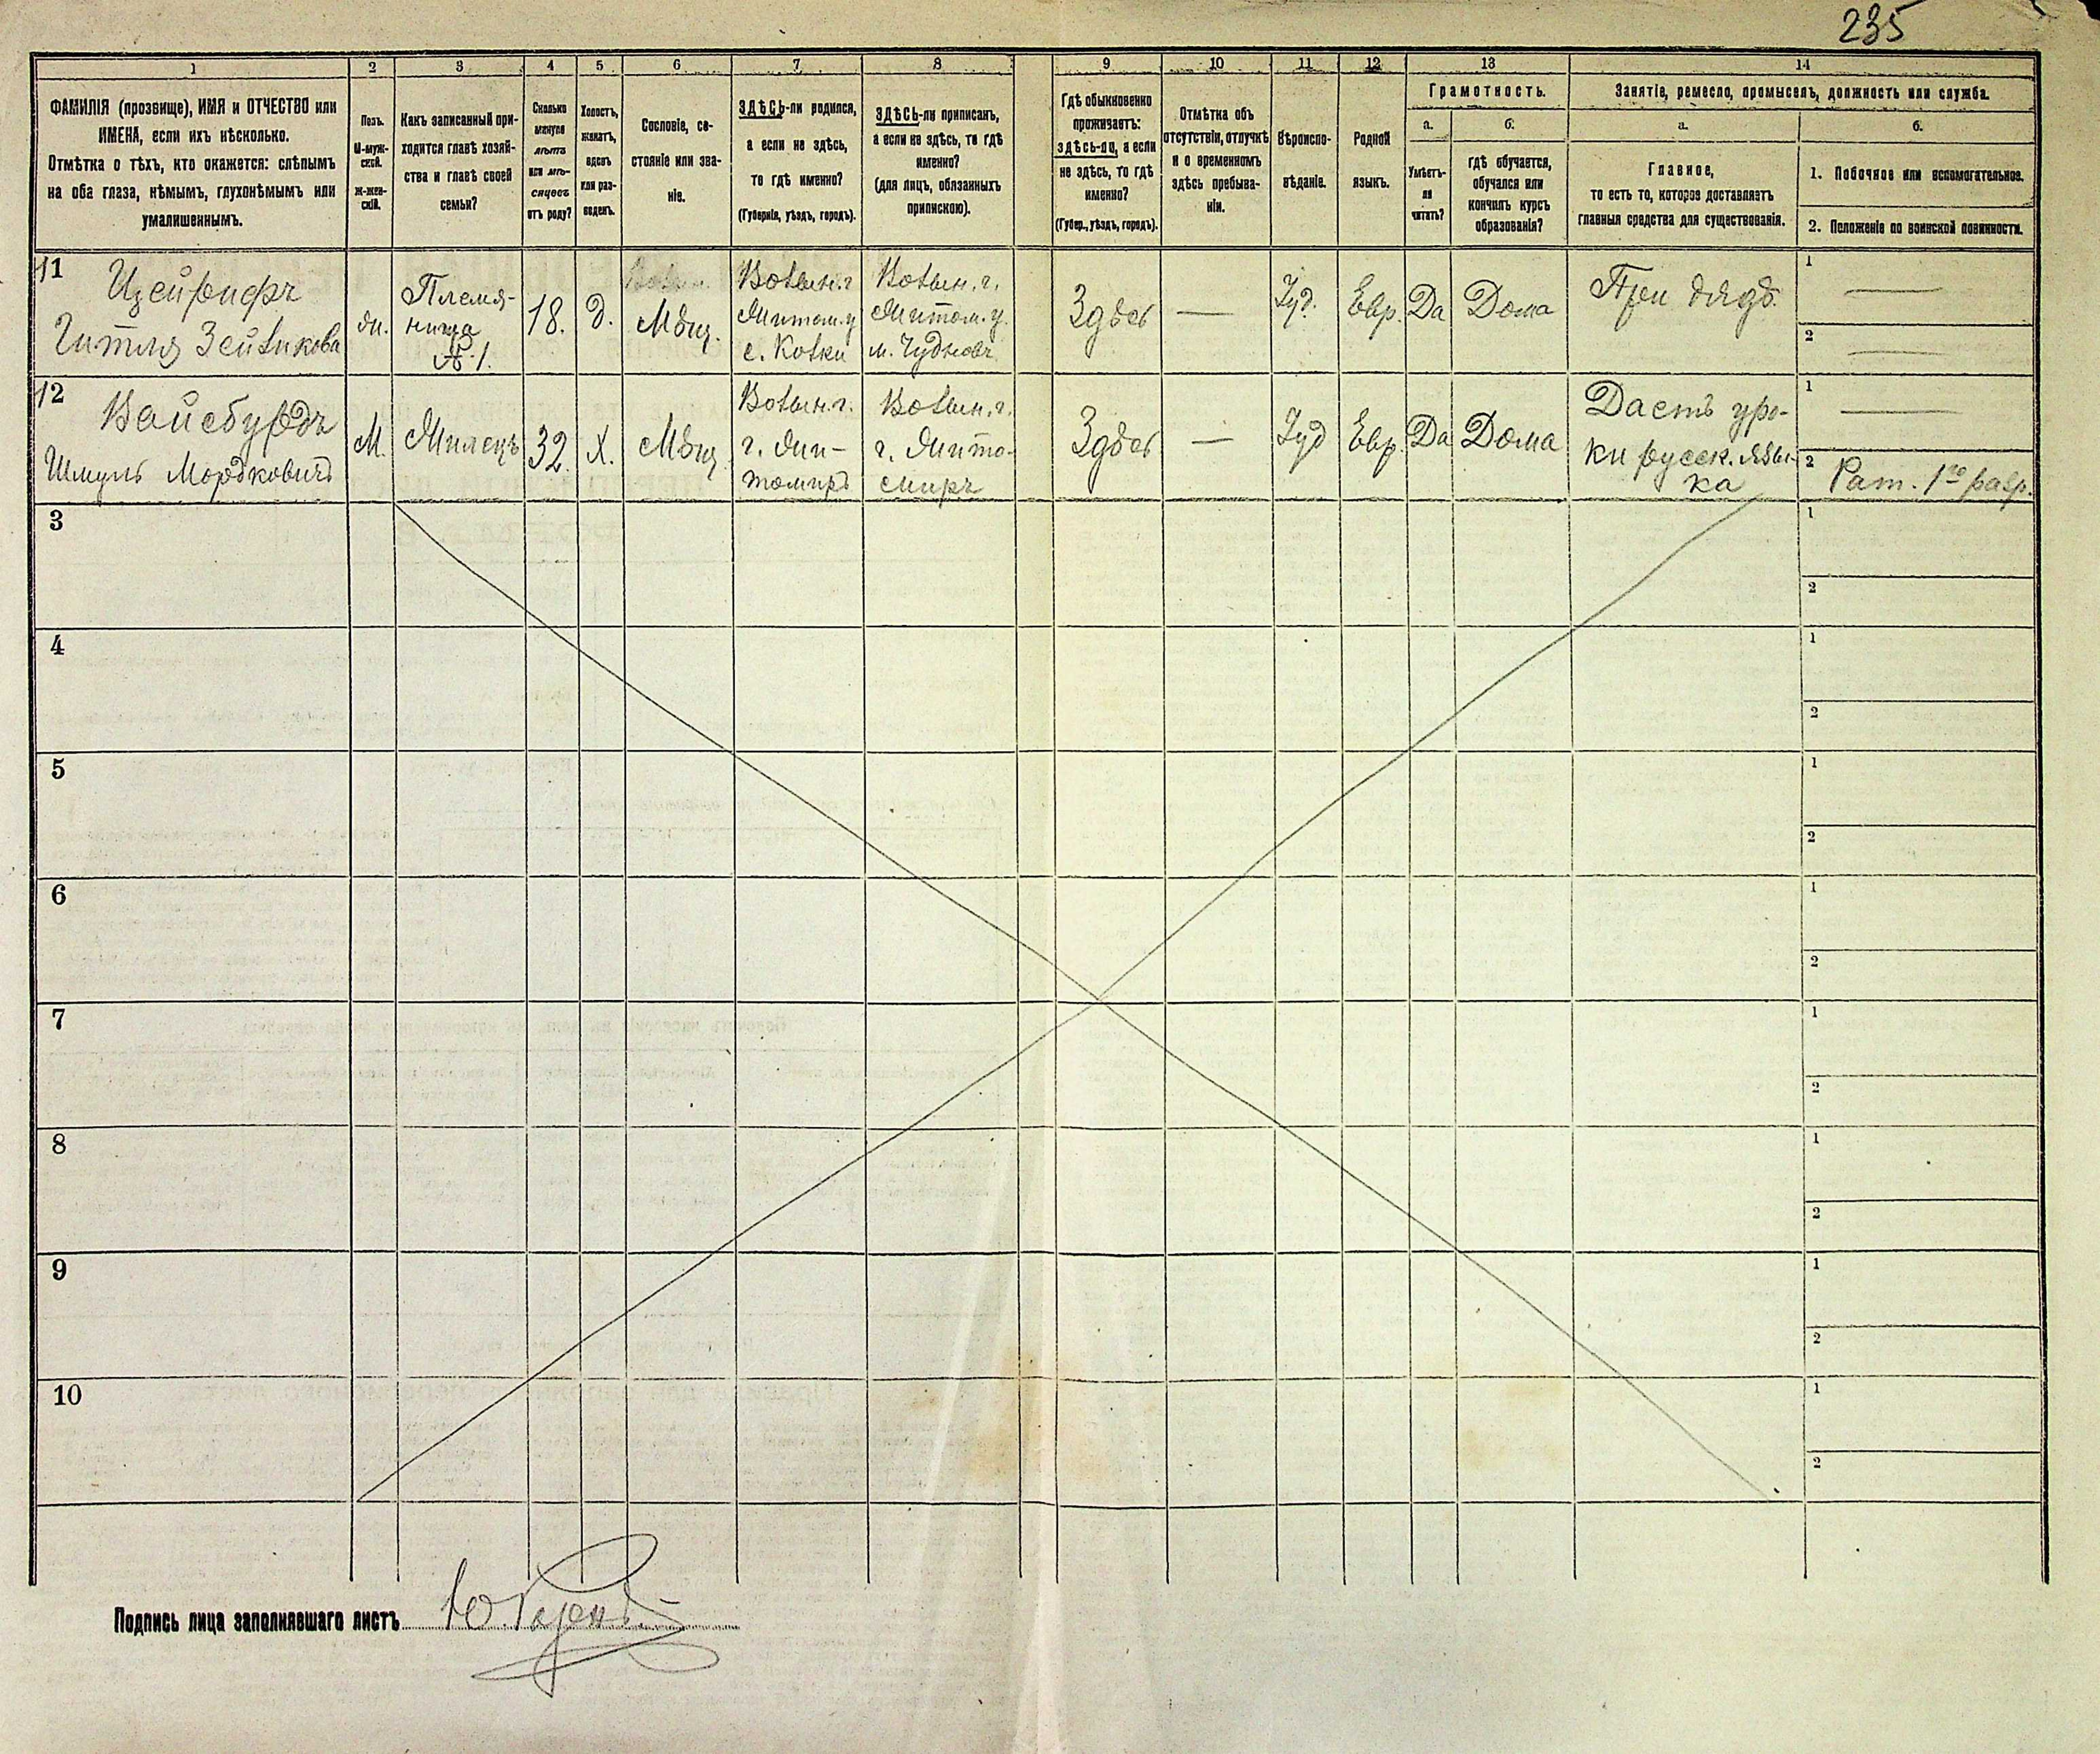 235
1
2
3
4
5
6
7
8
9
10
11
12
13
14
ФАМИЛІЯ (прозвище), ИМЯ и ОТЧЕСТВО или
ИМЕНА, если ихъ нѣсколько.
Отмѣтка о тѣхъ, кто окажется: слѣпымъ
на оба глаза, нѣмымъ, глухонѣмымъ или
умалишеннымъ.
Полъ.
М-муж-
ской.
ж-жен-
скій.
Какъ записанный при-
ходится главѣ хозяй-
ства и главѣ своей
семьи?
Сколько
минуло
лѣтъ
или мѣ-
сяцевъ
отъ роду?
Холостъ,
женатъ,
вдовъ
или раз-
веденъ.
Сословіе, со-
стояніе или зва-
ніе.
ЗДѢСЬ-ли родился,
а если не здѣсь,
то гдѣ именно?
(Губернія, уѣздъ, городъ).
ЗДѢСЬ-ли приписанъ,
а если не здѣсь, то гдѣ
именно?
(для лицъ, обязанныхъ
припискою).
Гдѣ обыкновенно
проживаетъ:
здѣсь-ли, а если
не здѣсь, то гдѣ
именно?
(Губер., уѣздъ, городъ).
Отмѣтка объ
отсутствіи, отлучкѣ
и о временномъ
здѣсь пребыва-
ніи.
Вѣроиспо-
вѣданіе.
Родной
языкъ.
Грамотность.
а.
Умѣетъ-
ли
читать?
б.
гдѣ обучается,
обучался или
кончилъ курсъ
образованія?
Занятіе, ремесло, промыселъ, должность или служба.
а.
Главное,
то есть то, которое доставляетъ
главныя средства для существованія.
б.
1. Побочное или вспомогательное.
2. Положеніе по воинской повинности.
11
Гитля Зейликова
Племя-
ница
№ 1.
18.
д.
Мѣщ.
Волын. г.
Житом. у
с. Колки
Волын. г.
Житом. у.
м. Чудновъ
Здѣсь
—
Іуд.
Евр.
Да
Дома
При дядѣ
1
—
2
—
12
Вайсбурдъ
Шмуль Мордковичъ
М.
Жилецъ
32.
Х.
Мѣщ.
Волын. г.
г. Жи-
томиръ
Волын. г.
г. Жито-
миръ
Здѣсь
—
Іуд
Евр.
Да
Дома
Даетъ уро-
ки русск. язы-
ка
1
—
2
Рат. 1го разр.
3
1
2
4
1
2
5
1
2
6
1
2
7
1
2
8
1
2
9
1
2
10
1
2
Подпись лица заполнявшаго листъ